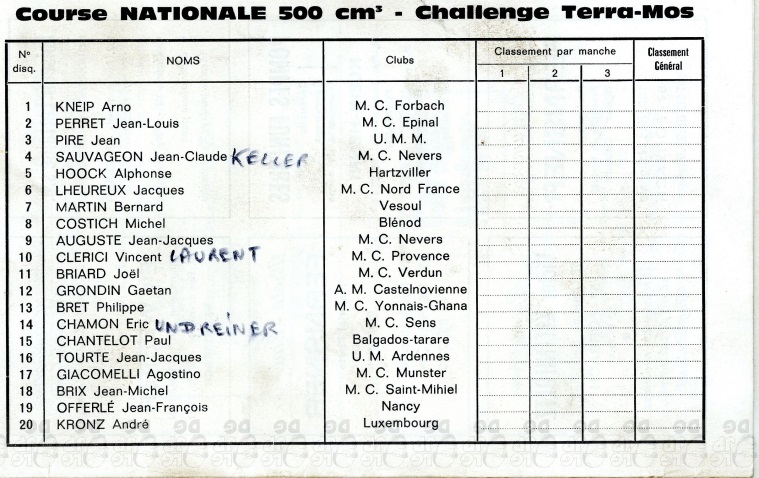 Course NATIONALE 500 cm³ - Challenge Terra-Mos
N° disq. NOMS Clubs Classement par manche Classement Général
1 2 3
1 KNEIP Arno M. C. Forbach
2 PERRET Jean-Louis M. C. Epinal
3 PIRE Jean U. M. M.
4 SAUVAGEON Jean-Claude KELLER M. C. Nevers
5 HOOCK Alphonse Hartzviller
6 LHEUREUX Jacques M. C. Nord France
7 MARTIN Bernard Vesoul
8 COSTICH Michel Blénod
9 AUGUSTE Jean-Jacques M. C. Nevers
10 CLERICI Vincent LAURENT M. C. Provence
11 BRIARD Joël M. C. Verdun
12 GRONDIN Gaetan A. M. Castelnovienne
13 BRET Philippe M. C. Yonnais-Ghana
14 CHAMON Eric UNDREINER M. C. Sens
15 CHANTELOT Paul Balgados-tarare
16 TOURTE Jean-Jacques U. M. Ardennes
17 GIACOMELLI Agostino M. C. Munster
18 BRIX Jean-Michel M. C. Saint-Mihiel
19 OFFERLÉ Jean-François Nancy
20 KRONZ André Luxembourg